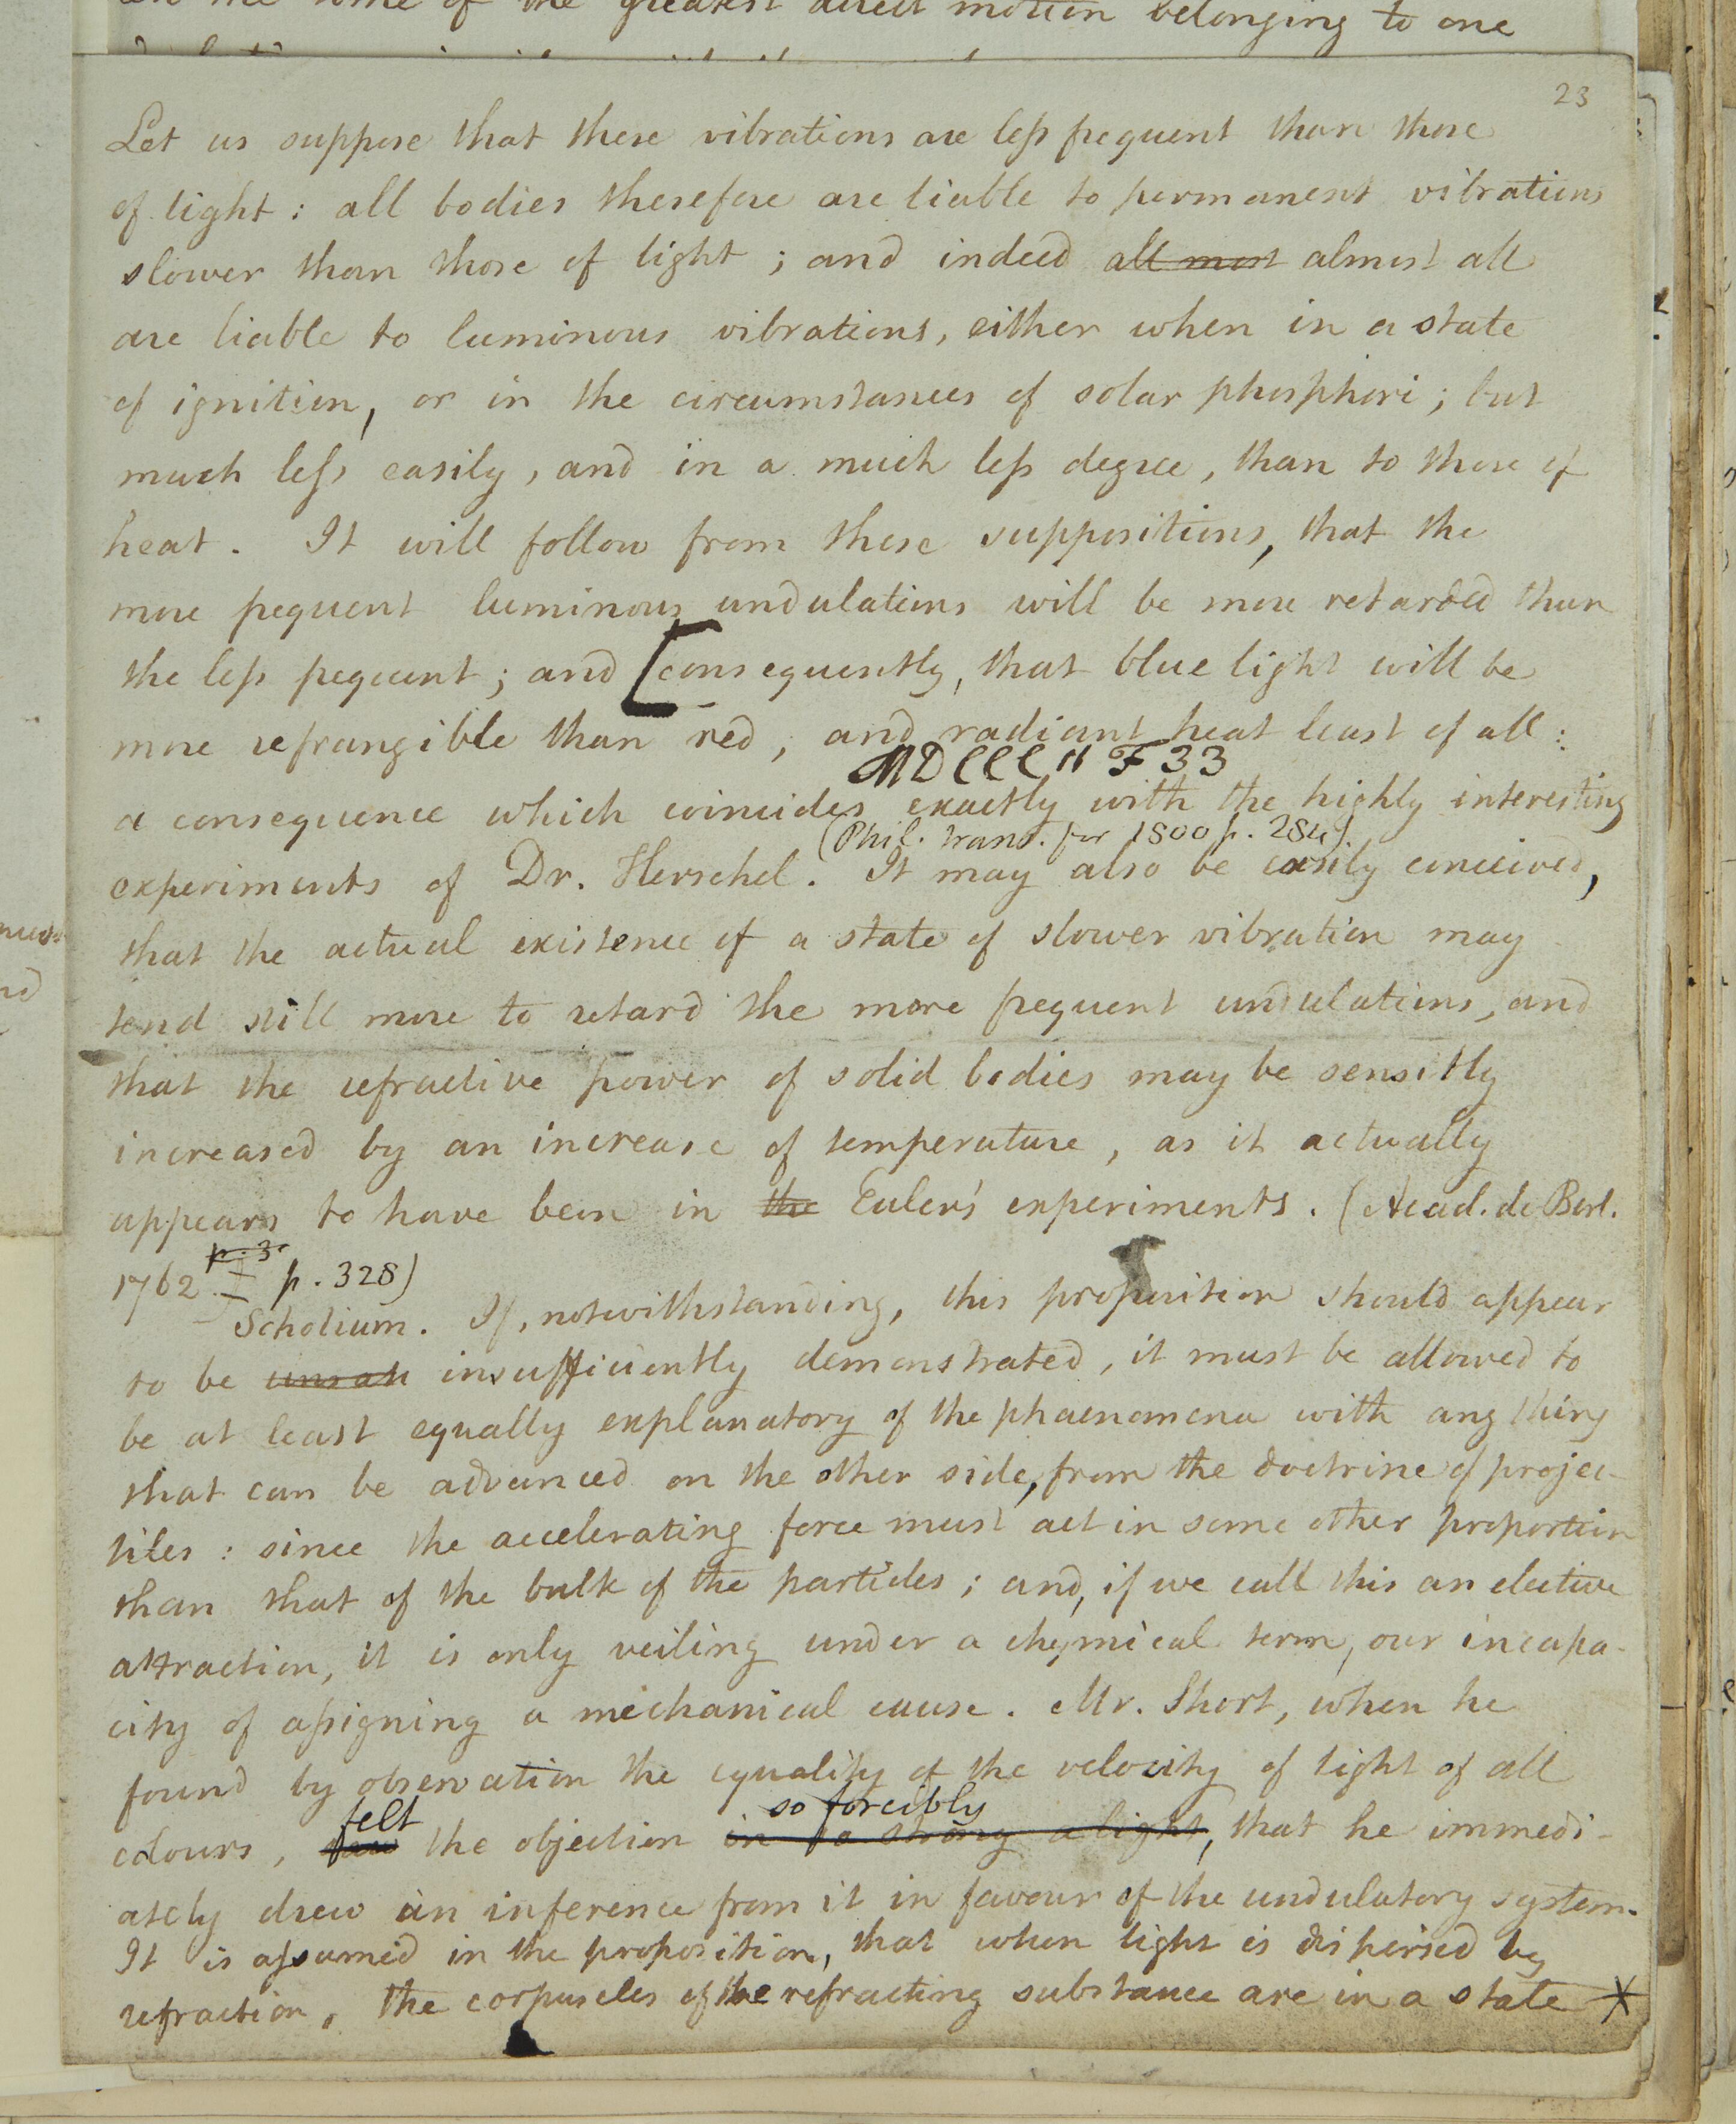 the greatest direct motion belonging to one
23
Let us suppose that these vibrations are less frequent than those
of light: all bodies therefore are liable to permanent vibrations
slower than those of light; and indeed all most almost all
are liable to luminous vibrations, either when in a state
of ignition, or in the circumstances of solar phosphori; but
much less easily, and in a much less degree, than to those of
heat. It will follow from these suppositions, that the
more frequent luminous undulations will be more retarded than
the less frequent; and [consequently, that blue light will be
more refrangible than red, and radiant heat least of all:
MDCCCII F 33
a consequence which coincides exactly with the highly interesting
(Phil. Trans. for 1800 p. 284)
experiments of Dr. Herschel. It may also be easily conceived,
that the actual existence of a state of slower vibration may
tend still more to retard the more frequent undulations, and
that the refractive power of solid bodies may be sensibly
increased by an increase of temperature, as it actually
appears to have been in the Euler's experiments. (Acad. de Berl.
p. 3.
1762. p. 328)
Scholium. If, notwithstanding, this proposition should appear
to be insufficiently demonstrated, it must be allowed to
be at least equally explanatory of the phaenomena with any thing
that can be advanced on the other side, from the doctrine of projec-
tiles: since the accelerating force must act in some other proportion
than that of the bulk of the particles; and, if we call this an elective
attraction, it is only veiling under a chymical term, our incapa-
city of assigning a mechanical cause. Mr. Short, when he
found by observation the equality of the velocity of light of all
felt so forcibly
colours, saw the objection in so strong a light, that he immedi-
ately drew an inference from it in favour of the undulatory system.
It is assumed in the proposition, that when light is dispersed by
refraction, the corpuscles of the refracting substance are in a state *